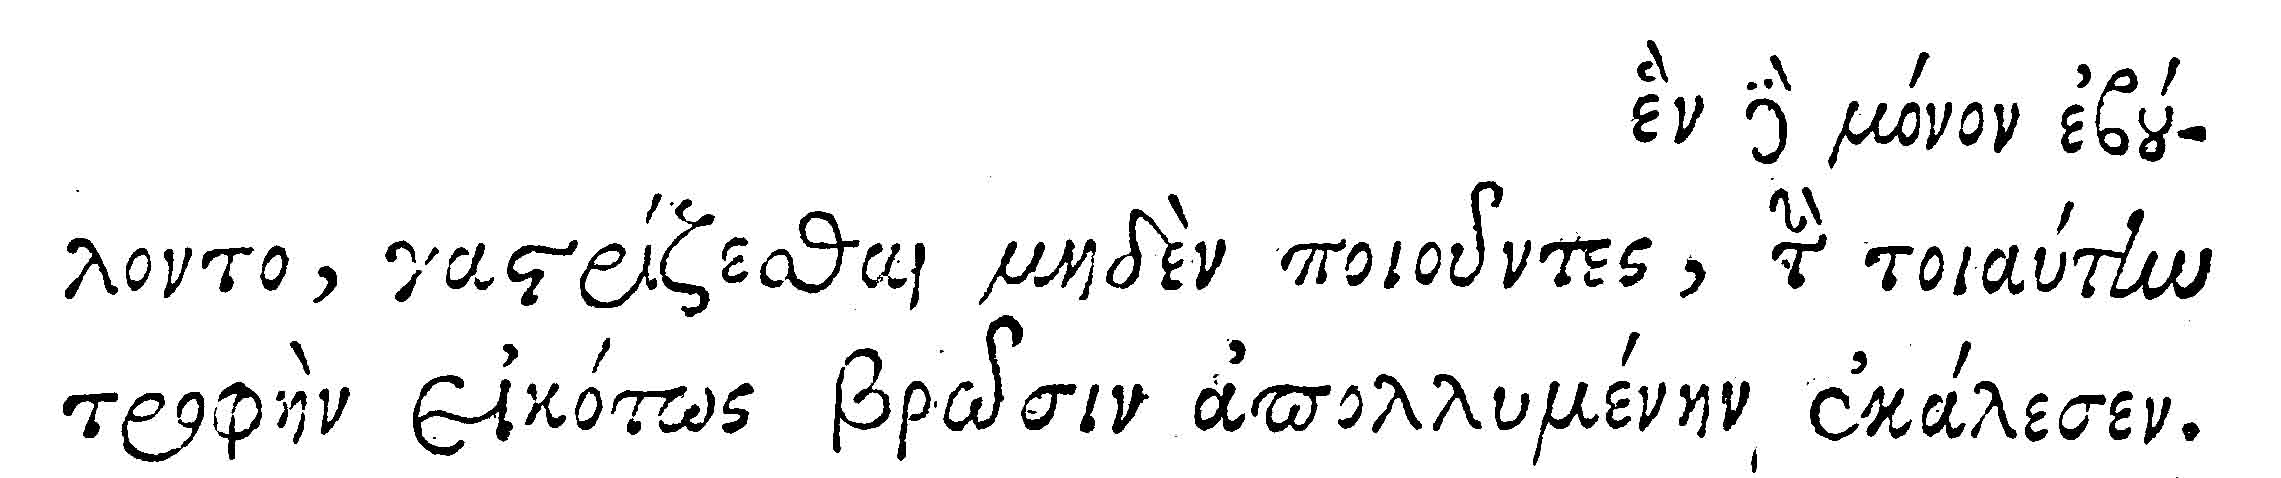 ἓν γὰρ μόνον ἐβού-
λοντο, γαστρίζεσθαι μηδὲν ποιοῦντες, τὴν τοιαύτην
τροφὴν εἰκότως βρῶσιν ἀπολλυμένην ἐκάλεσεν.